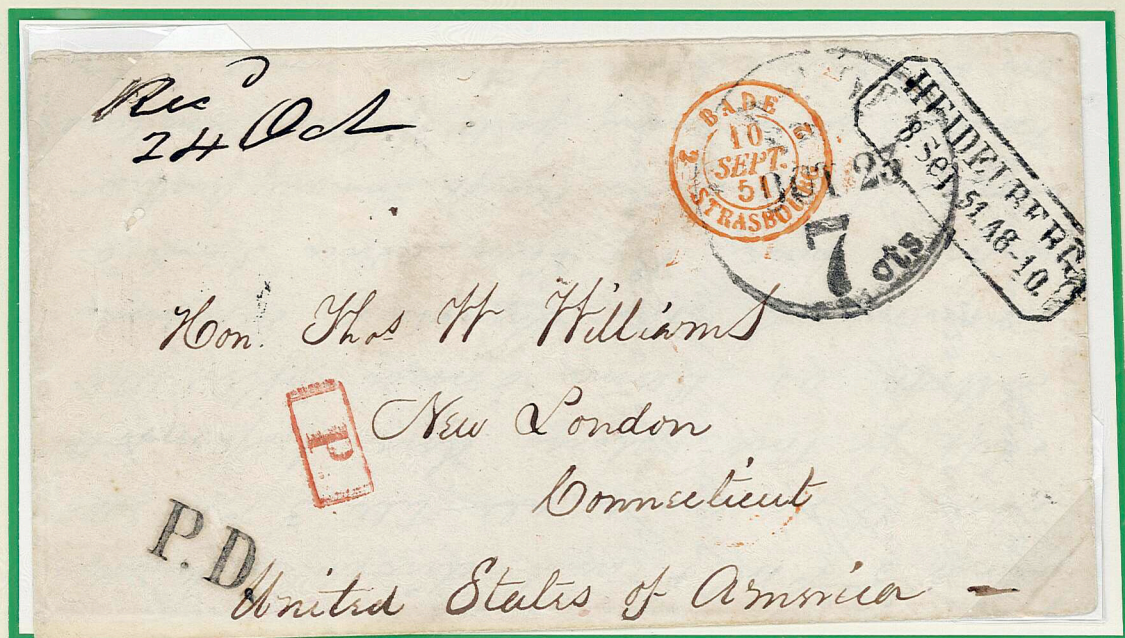 Recd
24 Oct
BADE
2 2
10
SEPT.
51
STRASBOURG
OCT 25
7
cts
HEIDELBERG
8 Sep. 51. A8-10.
Hon. Thos W Williams
New London
Connecticut
United States of America —
P.
P.D.